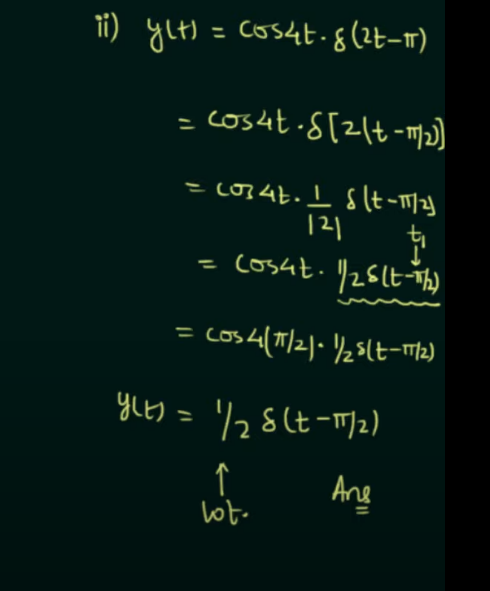 ii) y(t) = cos4t. δ(2t-π)
= cos4t .δ[2(t-π/2)]
= cos4t. 1/|2| δ(t-π/2)
t₁
↓
= cos4t. 1/2 δ(t-π/2)
= cos4(π/2). 1/2 δ(t-π/2)
y(t) = 1/2 δ(t-π/2)
↑
wt. Ans